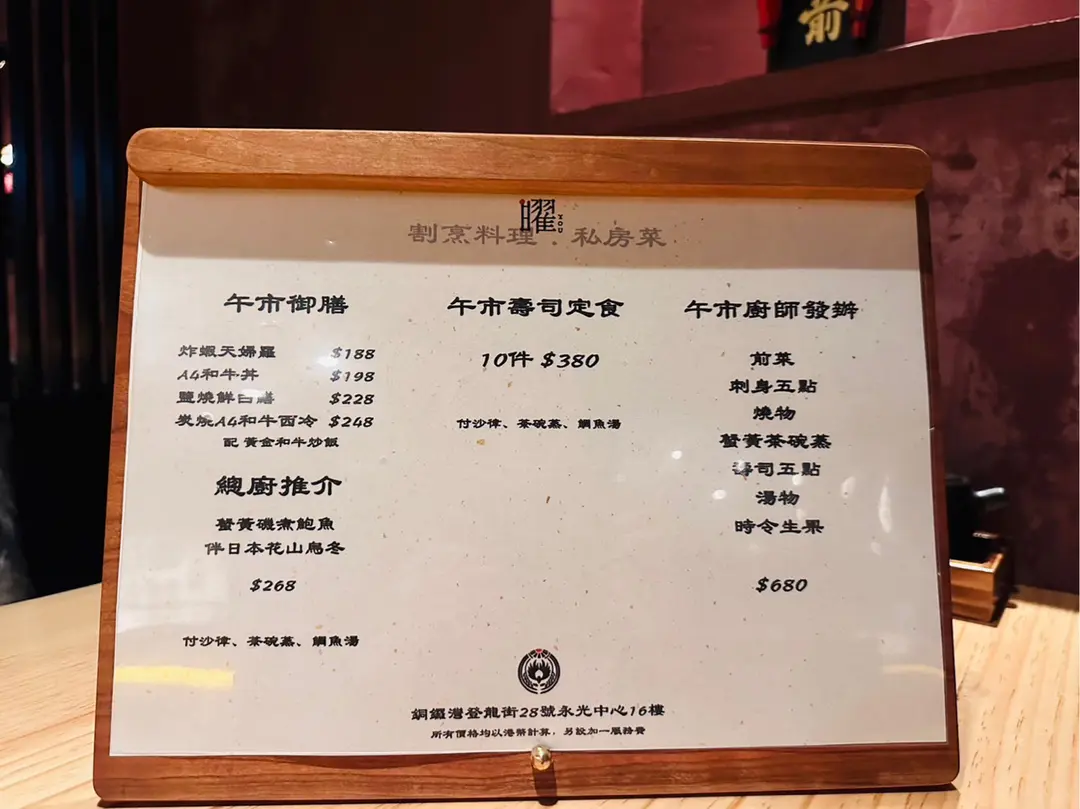 前
曜
割烹料理．私房菜
午市御膳
炸蝦天婦羅 $188
A4和牛丼 $198
鹽燒鮮白鱔 $228
炭燒A4和牛西冷 $248
配 黃金和牛炒飯
總廚推介
蟹黃磯煮鮑魚
伴日本花山烏冬
$268
付沙律、茶碗蒸、鯛魚湯
午市壽司定食
10件 $380
付沙律、茶碗蒸、鯛魚湯
午市廚師發辦
前菜
刺身五點
燒物
蟹黃茶碗蒸
壽司五點
湯物
時令生果
$680
銅鑼灣登龍街28號永光中心16樓
所有價格均以港幣計算，另設加一服務費